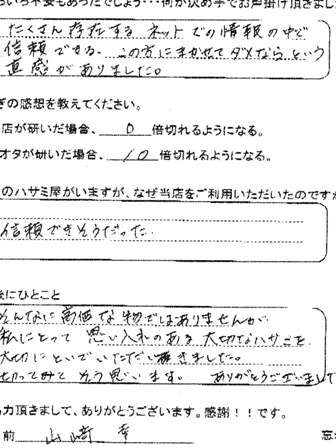 いろいろ不安もあったでしょう…何が決め手でお声掛け頂きまし
たくさん存在する ネットでの情報の中で
信頼できる、この方にまかせてダメなら という
直感がありました。
ぎの感想を教えてください。
店が研いだ場合、 0 倍切れるようになる。
オタが研いだ場合、 10 倍切れるようになる。
のハサミ屋がいますが、なぜ当店をご利用いただいたのですか
信頼できそうだった.
後にひとこと
そんなに高価な物ではありませんが
私にとって 思い入れのある 大切なハサミを
大切にといでいただい
切ってみて そう思います。 ありがとうございまして
力頂きまして、ありがとうございます。感謝!!です。
前 山崎 幸